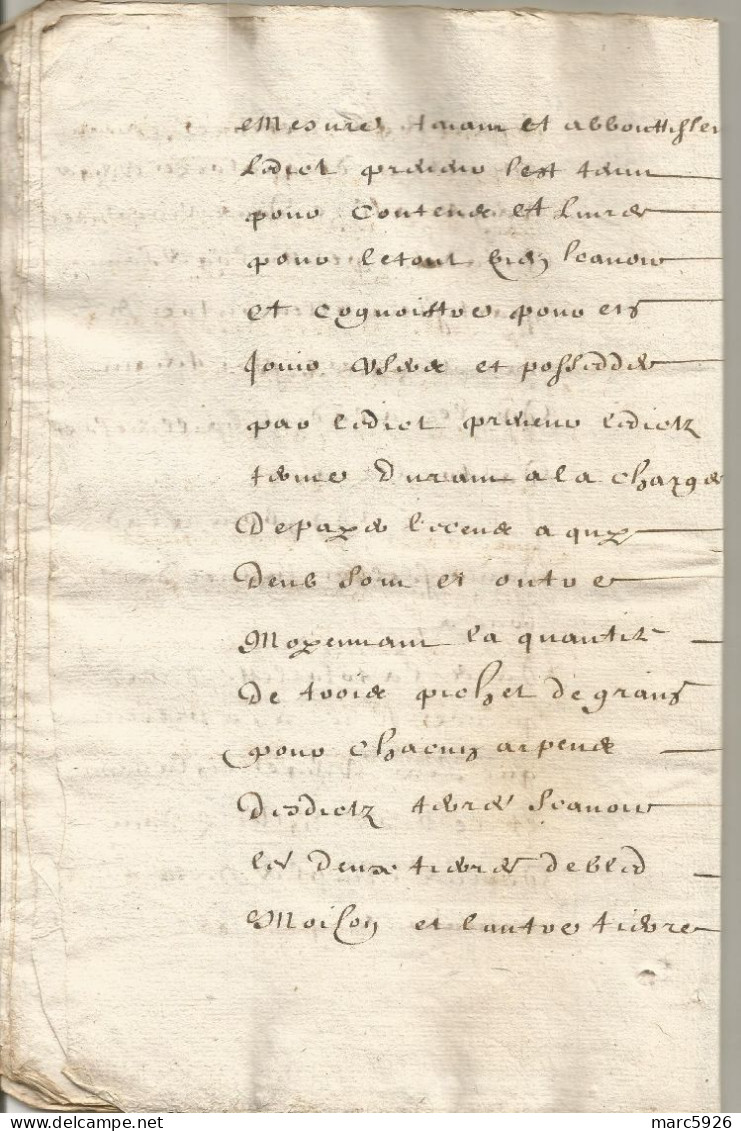 Mesures tenans et abboutissen
Ledict preneur s'est tenu
pour content et
pour le tout bien scavoir
et cognoistre pour en
Jouir User et possedder
par ledict preneur lesdictz
termes durant a la charge
De payer
Deub sont et outre
Moyennant la quantité
De trois pichet de grains
pour chacun arpend
Desdictz terres scavoir
les deux tierce de bled
Moison et l'autre tierce
marc5926